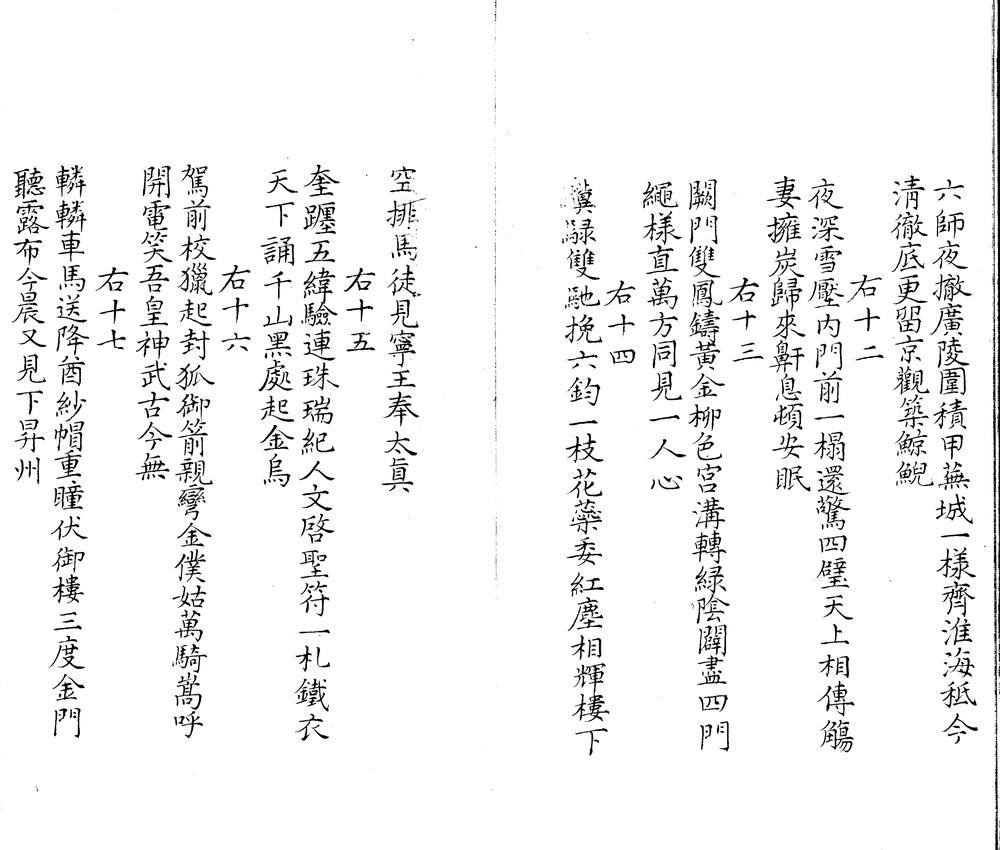 六師夜撤廣陵圍積甲蕪城一樣齊淮海秪今
清徹底更留京觀築鯨鯢
右十二
夜深雪壓內門前一榻還驚四壁天上相傳觴
妻擁炭歸來鼾息頓安眠
右十三
闕門雙鳳鑄黃金柳色宮溝轉綠陰闢盡四門
繩樣直萬方同見一人心
右十四
騄雙馳挽六鈞一枝花蘂委紅塵相輝樓下
空排馬徒見寧王奉太真
右十五
奎躔五緯驗連珠瑞紀人文啓聖符一札鐵衣
天下誦千山黑處起金烏
右十六
駕前校獵起封狐御箭親彎金僕姑萬騎嵩呼
開電笑吾皇神武古今無
右十七
轔轔車馬送降酋紗帽重瞳伏御樓三度金門
聽露布今晨又見下昇州